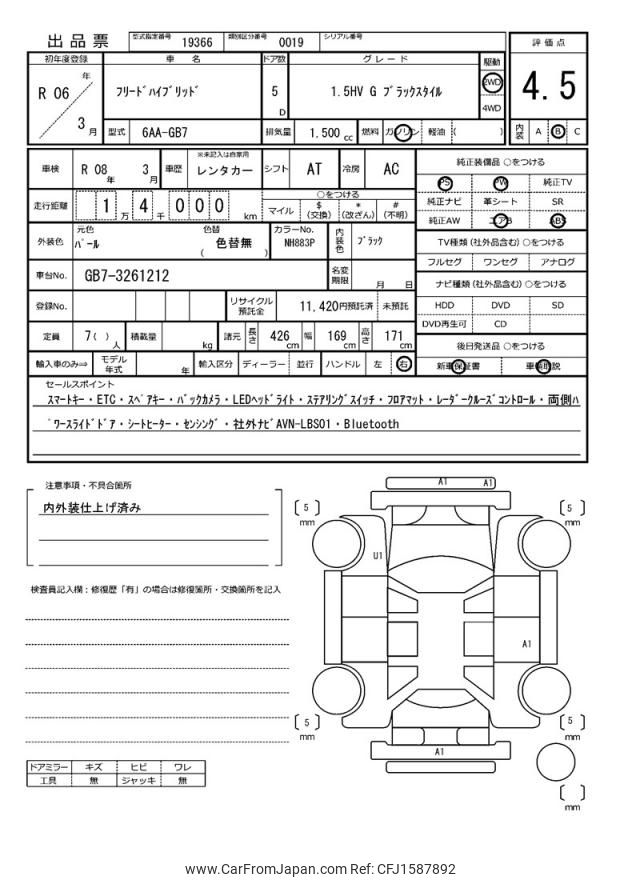 出品票 型式指定番号 19366 類別区分番号 0019 シリアル番号
評価点
初年度登録 車名 ドア数 グレード 駆動
R 06 年 3 月 フリードハイブリッド 5 D 1.5HV G ブラックスタイル 2WD 4WD
4.5
型式 6AA-GB7 排気量 1.500 cc 燃料 ガソリン 軽油 ( )
内装 A B C
車検 R 08 年 3 月 車歴 ※未記入は自家用 レンタカー シフト AT 冷房 AC
走行距離 1 万 4 千 0 0 0 km ○をつける マイル $ (交換) * (改ざん) # (不明)
外装色 元色 パール 色替 色替無 ( ) カラーNo. NH883P 内装色 ブラック
車台No. GB7-3261212 名変期限 月 日
登録No. リサイクル預託金 11,420円預託済 未預託
定員 7( ) 人 積載量 kg 諸元 長さ 426 cm 幅 169 cm 高さ 171 cm
輸入車のみ⇒ モデル年式 年 輸入区分 ディーラー 並行 ハンドル 左 右
純正装備品 ○をつける
PS PW 純正TV
純正ナビ 革シート SR
純正AW エアB ABS
TV種類 (社外品含む) ○をつける
フルセグ ワンセグ アナログ
ナビ種類 (社外品含む) ○をつける
HDD DVD SD
DVD再生可 CD
後日発送品 ○をつける
新車保証書 車輌取説
セールスポイント
スマートキー・ETC・スペアキー・バックカメラ・LEDヘッドライト・ステアリングスイッチ・フロアマット・レーダークルーズコントロール・両側ハ
゚ワースライドドア・シートヒーター・センシング・社外ナビAVN-LBS01・Bluetooth
注意事項・不具合箇所
内外装仕上げ済み
検査員記入欄:修復歴「有」の場合は修復箇所・交換箇所を記入
A1 A1
5 mm
5 mm
U1
A1
5 mm
5 mm
A1
mm
ドアミラー キズ ヒビ ワレ
工具 無 ジャッキ 無
www.CarFromJapan.com Ref: CFJ1587892